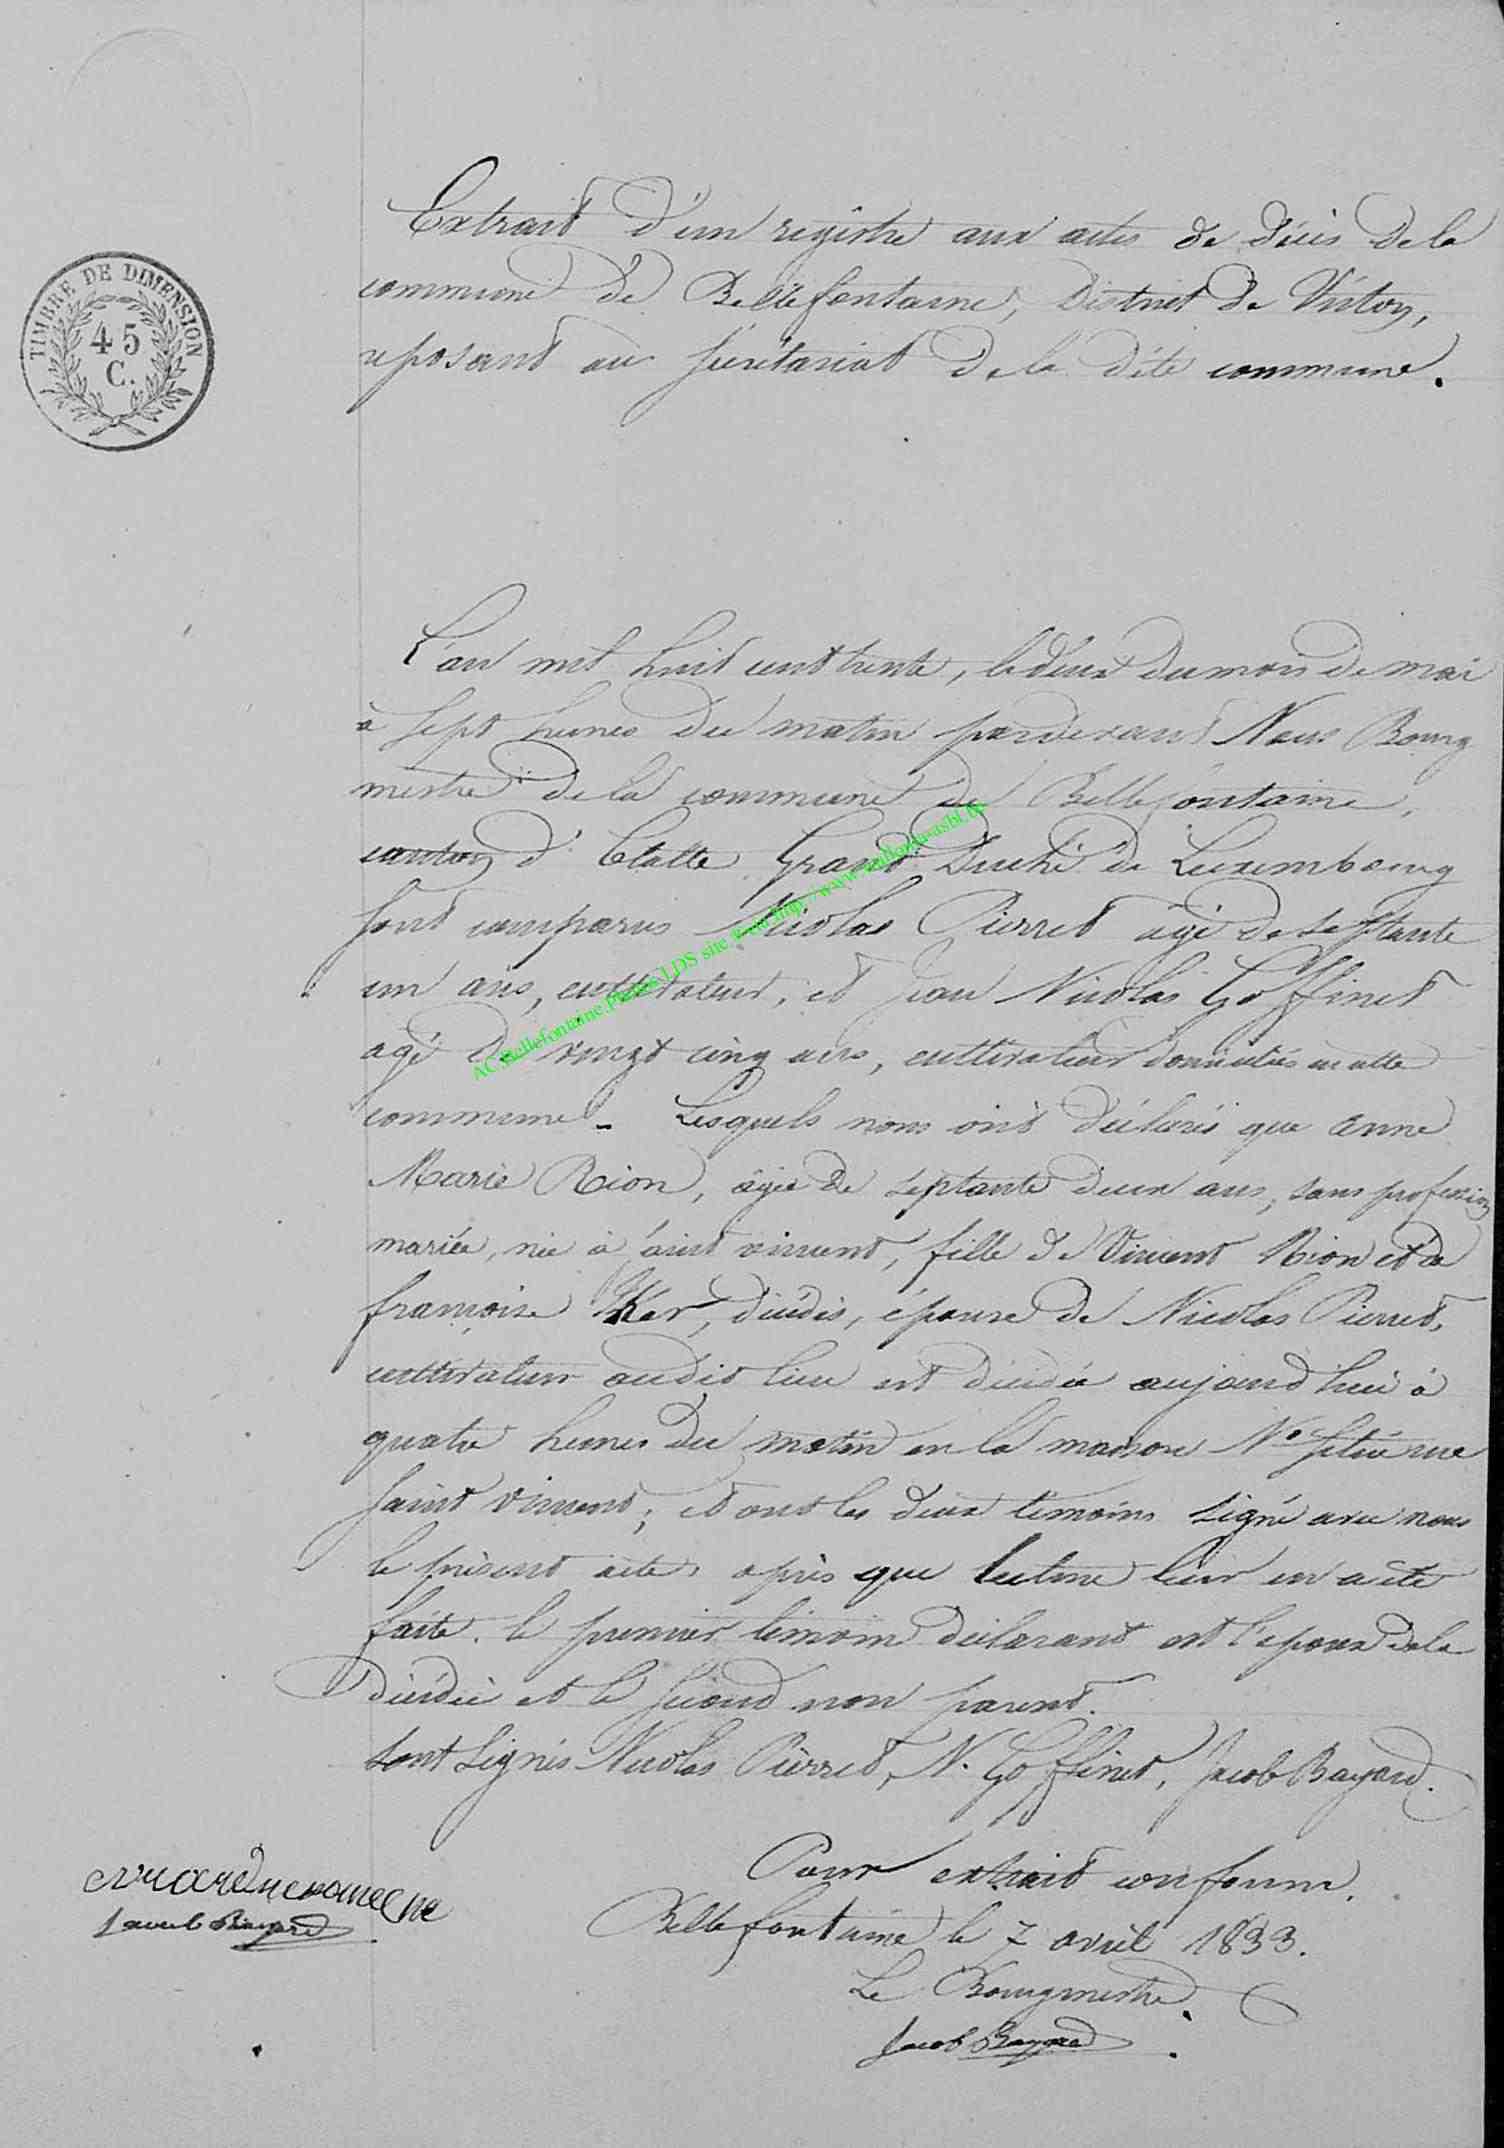 Extrait d'un registre aux actes de décès de la
commune de Bellefontaine, District de Virton,
reposant au secrétariat de la dite commune.
TIMBRE DE DIMENSION
45
C.
L'an mil huit cent trente, le deux du mois de mai
à sept heures du matin pardevant Nous Bourg
mestre de la commune de Bellefontaine,
canton d'Etalle Grand Duché de Luxembourg
sont comparus Nicolas Pierret âgé de septante
un ans, cultivateur, et jean Nicolas Goffinet
agé de vingt cinq ans, cultivateur domiciliés en cette
commune. Lesquels nous ont déclaré que anne
Marie Rion, âgée de septante deux ans, sans profession
mariée, née à saint vincent, fille de Vincent Rion et de
françoise Ker, décédés, épouse de Nicolas Pierret,
cultivateur audit lieu est décédée aujourd'hui à
quatre heures du matin en la maison N° située rue
saint vincent; et ont les deux témoins signé avec nous
le présent acte, après que lecture leur en a été
faite. le premier témoin déclarant est l'époux de la
décédée et le second non parent.
sont signés Nicolas Pierret, N. Goffinet, Jacob Bayard.
Pour extrait conforme.
Jacob Bayard
Bellefontaine le 7 avril 1833.
Le Bourgmestre.
Jacob Bayard
AC Bellefontaine Photos LDS site http://www